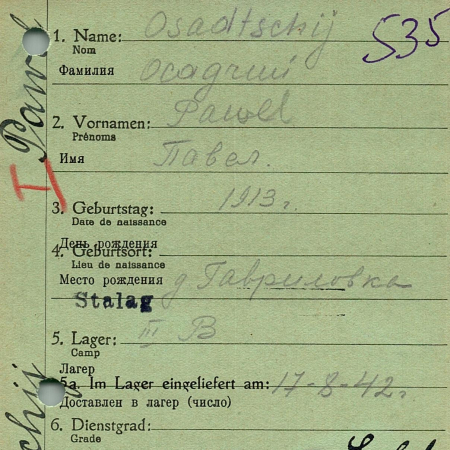 1. Name: Osadtschij
Nom
535
Фамилия Осадчий
2. Vornamen: Pawel
Prénoms
Имя Павел.
3. Geburtstag: 1913 г.
Date de naissance
День рождения
4. Geburtsort:
Lieu de naissance
Место рождения д Гавриловка
Stalag
5. Lager: III B
Camp
Лагерь
5a. Im Lager eingeliefert am: 17-8-42г.
Доставлен в лагерь (число)
6. Dienstgrad:
Grade
I